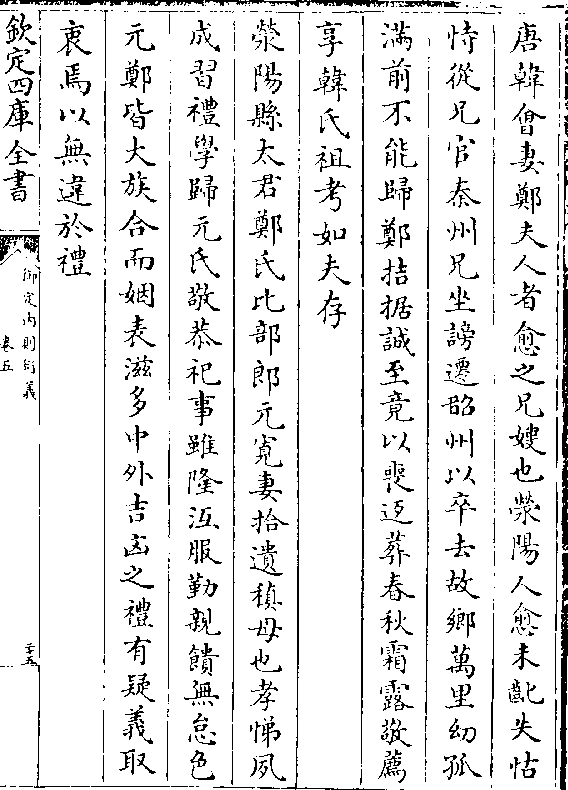 唐韓會妻鄭夫人者愈之兄嫂也滎陽人愈未齔失怙
恃從兄官秦州兄坐謗遷韶州以卒去故鄉萬里幼孤
滿前不能歸鄭拮据誠至竟以喪返葬春秋霜露敬薦
享韓氏祖考如夫存
滎陽縣太君鄭氏比部郎元寛妻拾遺稹母也孝悌夙
成習禮學歸元氏敬恭祀事雖隆沍服勤親饋無怠色
元鄭皆大族合而姻表滋多中外吉凶之禮有疑義取
衷焉以無違於禮
欽定四庫全書
御定内則衍義
卷五
二十五